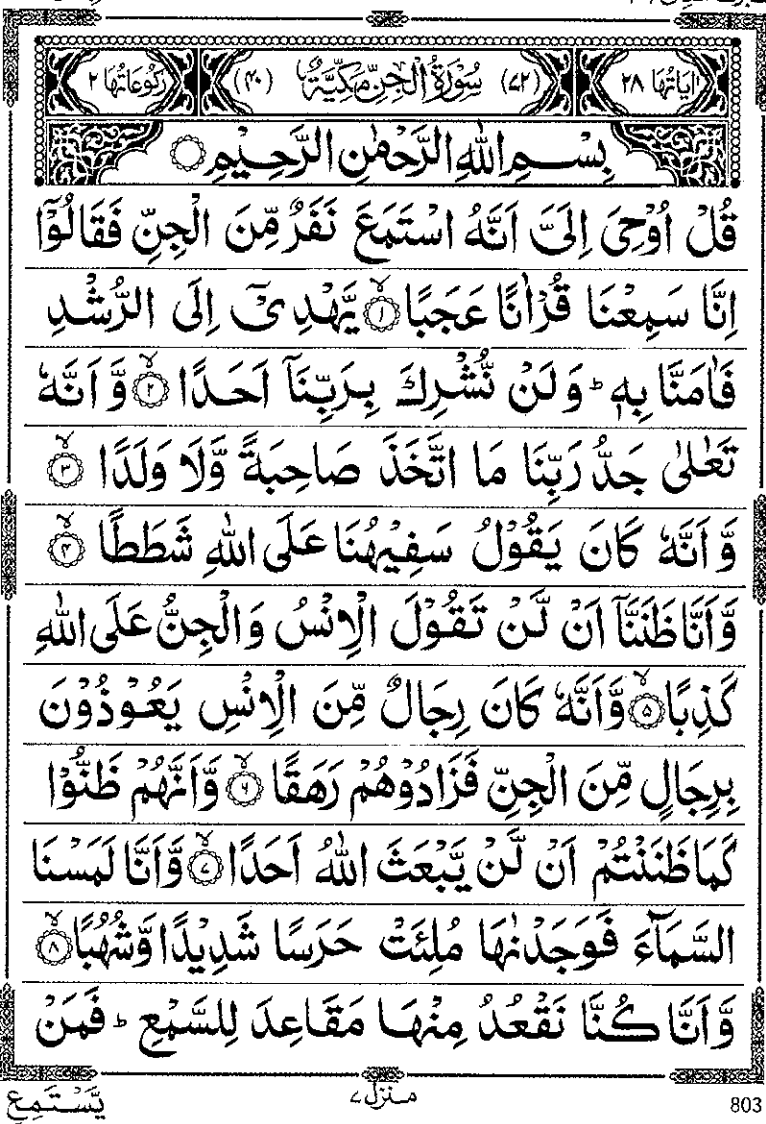 اٰيَاتُهَا ۲۸ (۷۲) سُوْرَةُ الْجِنِّ مَكِّيَّةٌ (۴۰) رُكُوْعَاتُهَا ۲
بِسْمِ اللّٰهِ الرَّحْمٰنِ الرَّحِيْمِ ۝
قُلْ اُوْحِيَ اِلَيَّ اَنَّهُ اسْتَمَعَ نَفَرٌ مِّنَ الْجِنِّ فَقَالُوْۤا
اِنَّا سَمِعْنَا قُرْاٰنًا عَجَبًا ۝۱ۙ يَّهْدِيْۤ اِلَى الرُّشْدِ
فَاٰمَنَّا بِهٖ ؕ وَلَنْ نُّشْرِكَ بِرَبِّنَاۤ اَحَدًا ۝۲ۙ وَّاَنَّهٗ
تَعٰلٰى جَدُّ رَبِّنَا مَا اتَّخَذَ صَاحِبَةً وَّلَا وَلَدًا ۝۳ۙ
وَّاَنَّهٗ كَانَ يَقُوْلُ سَفِيْهُنَا عَلَى اللّٰهِ شَطَطًا ۝۴ۙ
وَّاَنَّا ظَنَنَّاۤ اَنْ لَّنْ تَقُوْلَ الْاِنْسُ وَالْجِنُّ عَلَى اللّٰهِ
كَذِبًا ۝۵ۙ وَّاَنَّهٗ كَانَ رِجَالٌ مِّنَ الْاِنْسِ يَعُوْذُوْنَ
بِرِجَالٍ مِّنَ الْجِنِّ فَزَادُوْهُمْ رَهَقًا ۝۶ۙ وَّاَنَّهُمْ ظَنُّوْا
كَمَا ظَنَنْتُمْ اَنْ لَّنْ يَّبْعَثَ اللّٰهُ اَحَدًا ۝۷ۙ وَّاَنَّا لَمَسْنَا
السَّمَآءَ فَوَجَدْنٰهَا مُلِئَتْ حَرَسًا شَدِيْدًا وَّشُهُبًا ۝۸ۙ
وَّاَنَّا كُنَّا نَقْعُدُ مِنْهَا مَقَاعِدَ لِلسَّمْعِ ؕ فَمَنْ
يَّسْتَمِعِ منزل ۷ 803